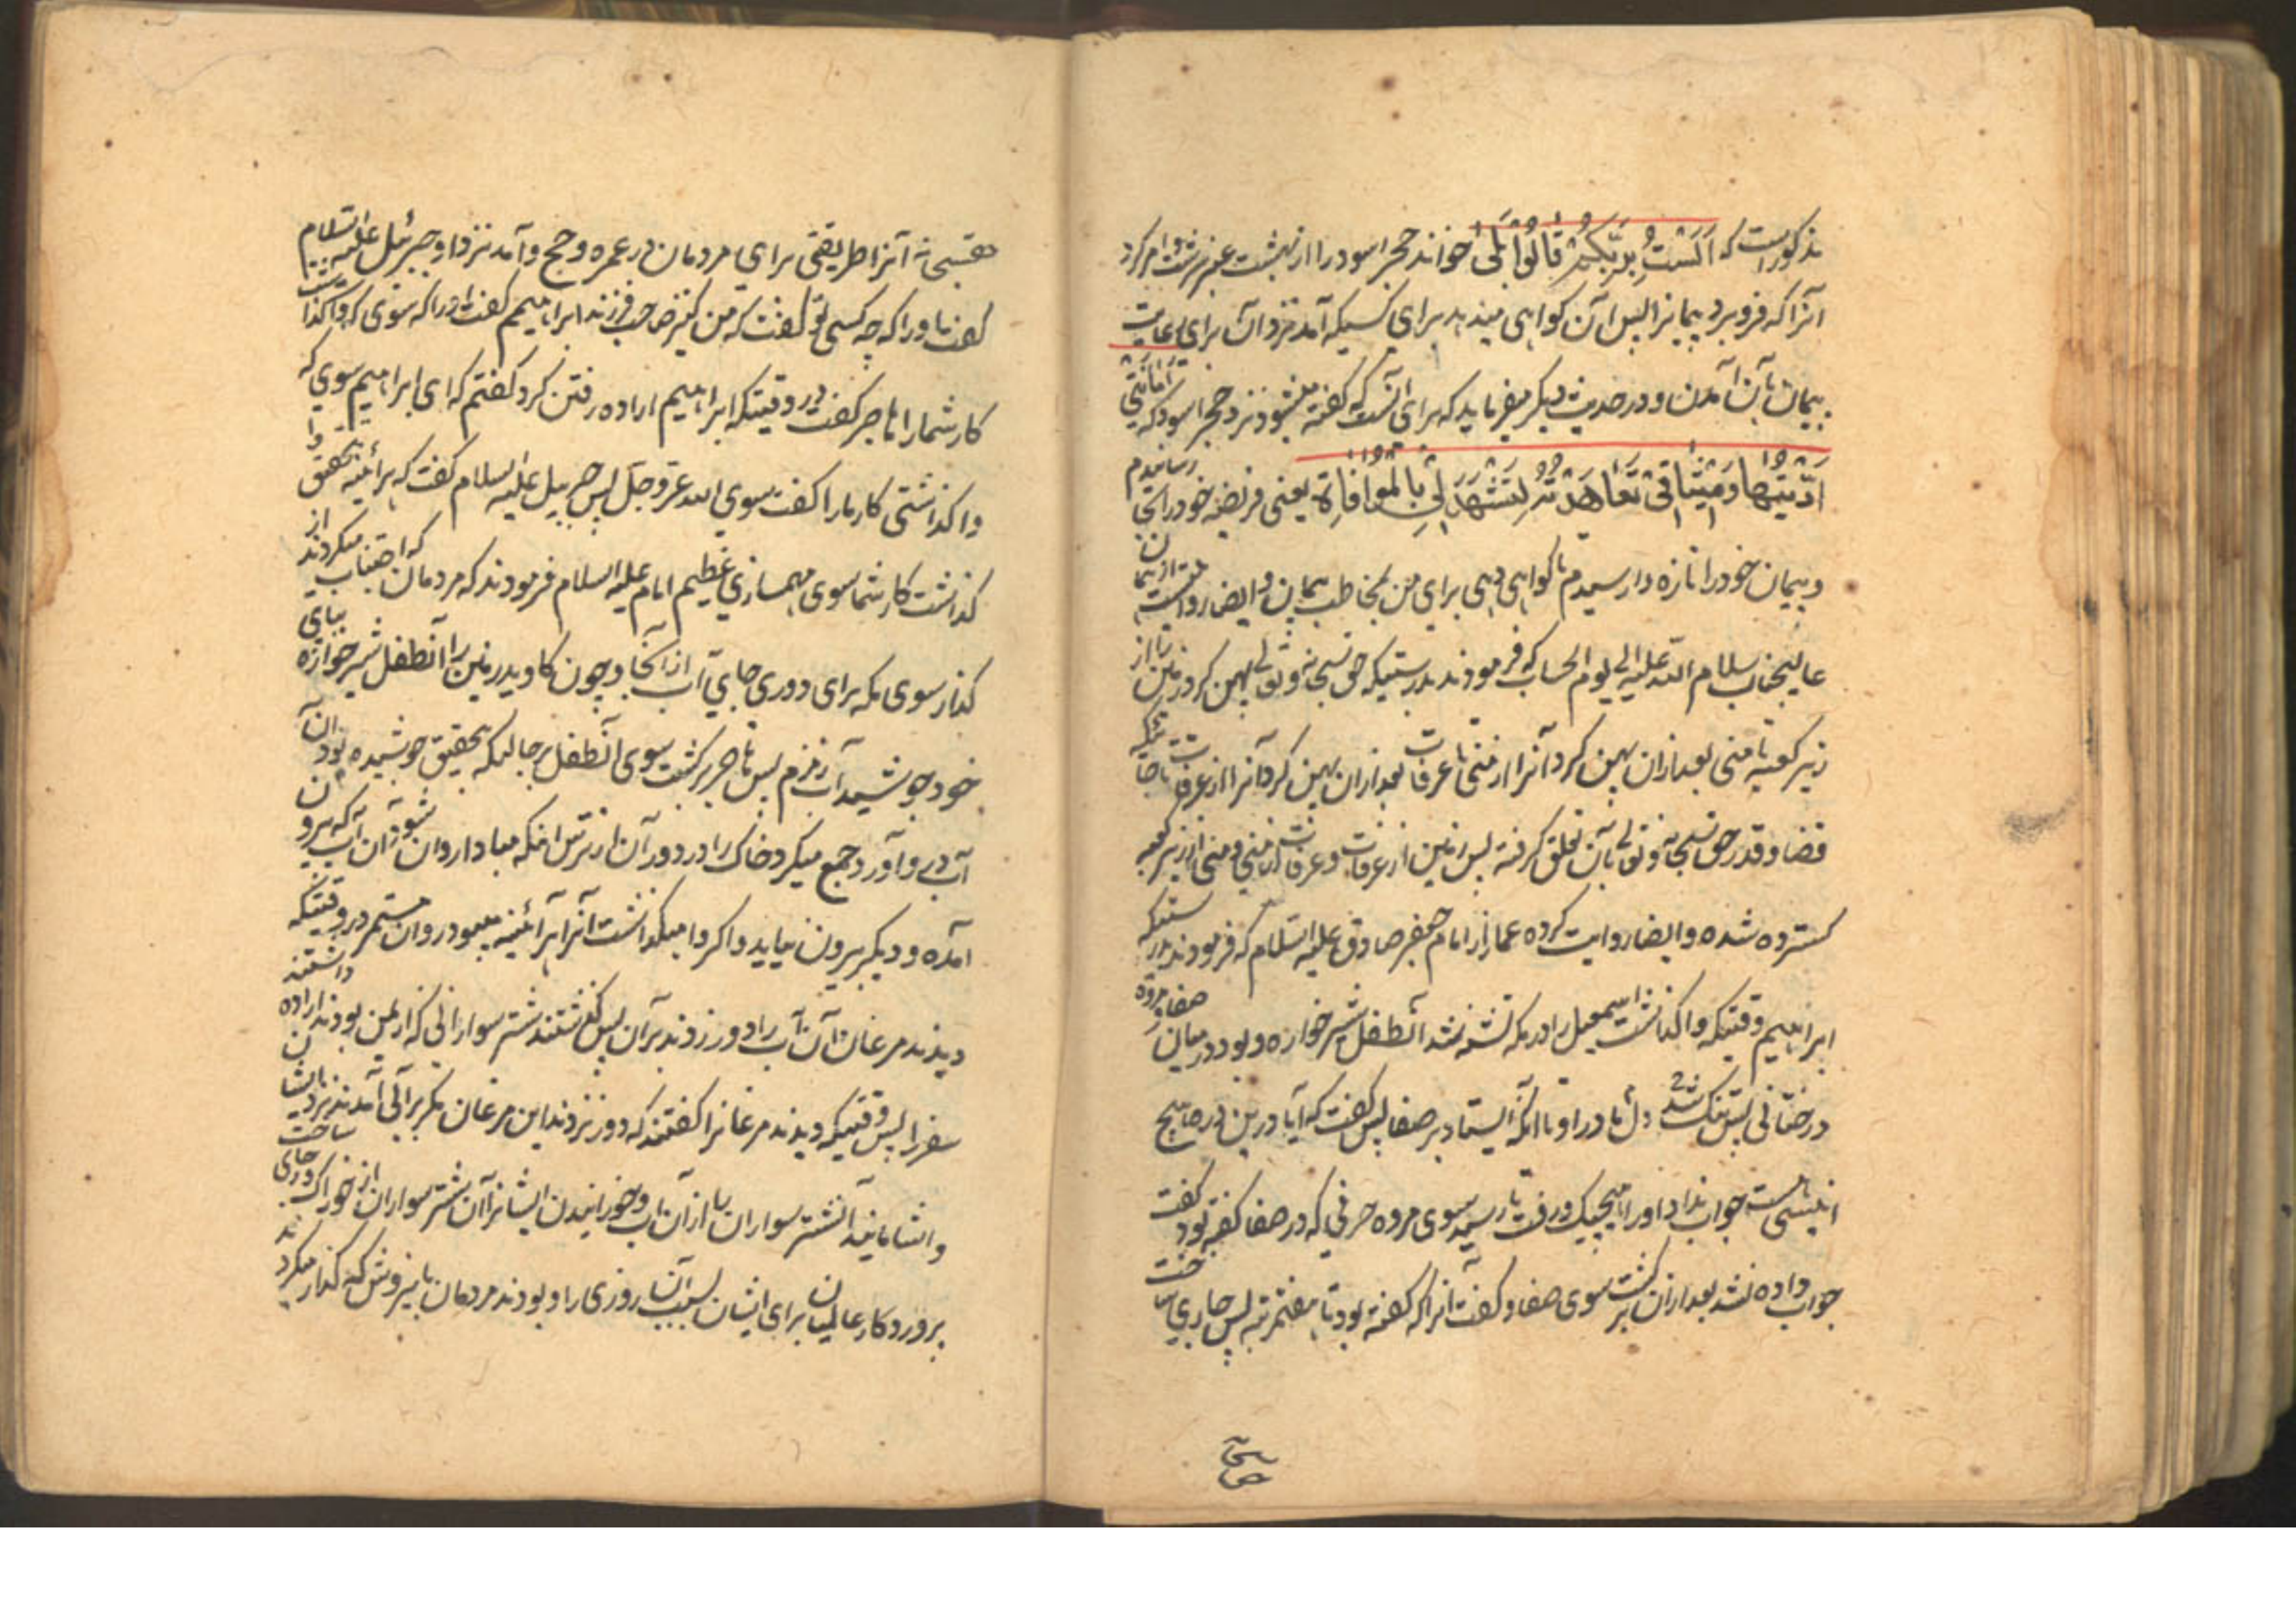 مذکور است که اَلَسْتُ بِرَبِّکُمْ قَالُوا بَلَی خواند حجر اسود را از بهشت عنبر سرشت و امر کرد
آنرا که فرو برد پیمانرا پس آن گواهی میدهد برای کسیکه آمد نزد آن برای رعایت
پیمان بآن آمدن و در حدیث دیگر میفرماید که برای آنست که گفته میشود نزد حجر اسود که اَمَانَتِی
اَدَّیْتُهَا وَ مِیْثَاقِی تَعَاهَدْتُهُ لِتَشْهَدَ لِی بِالْمُوَافَاةِ یعنی فریضه خود را بجا رسانیدم
و پیمان خود را تازه وا رسیدم تا گواهی دهی برای من بمخاطب پیمان و ایضا روایست از همان
عالیجناب سلام الله علیه الی یوم الحساب که فرمودند بدرستیکه حق سبحانه و تعالی پهن کرد زمین را از
زیر کعبه تا منی بعد ازان پهن کرد آنرا از منی تا عرفات بعد ازان پهن کرد آنرا از عرفات تا جائیکه
قضا و قدر حق سبحانه و تعالی بآن تعلق گرفته پس زمین از عرفات و عرفات از منی و منی از زیر کعبه
گسترده شده و ایضا روایت کرده عمار از امام جعفر صادق علیه السلام که فرمودند بدرستیکه
ابراهیم وقتیکه واگذاشت اسمعیل را در مکه تشنه شد آنطفل شیرخواره و بود در میان صفا و مروه
درختانی پس تنک شد دل مادر او تا آنکه ایستاد بر صفا پس گفت که آیا درین در ها هیچ
انیسی هست جواب نداد او را هیچیک و رفت تا رسید بسوی مروه حرفی که در صفا گفته بود گفت
جواب داده نشد بعد ازان برگشت سوی صفا و گفت آنرا که گفته بود تا هفتمرتبه پس جاری ساخت
حقسبحانه آنرا طریقتی برای مردمان در عمره و حج و آمد نزد او جبرئیل علیه السلام
گفت باو را که چه کسی تو گفت که من کنیز صاحب فرزند ابراهیمم گفت او را که سوی که واگذاشت
کار شما را هاجر گفت در وقتیکه ابراهیم اراده رفتن کرد گفتم که ای ابراهیم سوی که
واگذاشتی کار ما را گفت سوی الله عز و جل پس جبرییل علیه السلام گفت که هرآئینه بتحقیق وا
گذاشت کار شما سوی مهمسازی عظیم امام علیه السلام فرمودند که مردمان که اجتناب میکردند از
گذار سوی مکه برای دوری جای آب از آنجا و چون کاوید زمین را آنطفل شیرخواره بپای
خود جوشید آب زمزم پس هاجر برگشت سوی آنطفل بر حالیکه بتحقیق جوشیده بود آن
آب و آورد جمع میکرد خاک را در دور آن از ترس اینکه مبادا روان شود آن آب که بیرون
آمده و دیگر بیرون نیاید و اگر وا میگذاشت آنرا هرآئینه میبود روان مستمر در وقتیکه
دیدند مرغان آن آب را دور زدند بر آن پس گذشتند شتر سوارانی که از یمن بودند اراده داشتند
سفر را پس وقتیکه دیدند مرغانرا گفتند که دور نزدند این مرغان مگر بر آبی آمدند نزد ایشان
و اشامانید آنشتر سواران را از آن آب و خورانیدن ایشانرا آن شتر سواران از خوراک و جاری ساخت
پروردگار عالمیان برای ایشان بسبب آن روزی را و بودند مردمان بآن روش که گذار میکردند